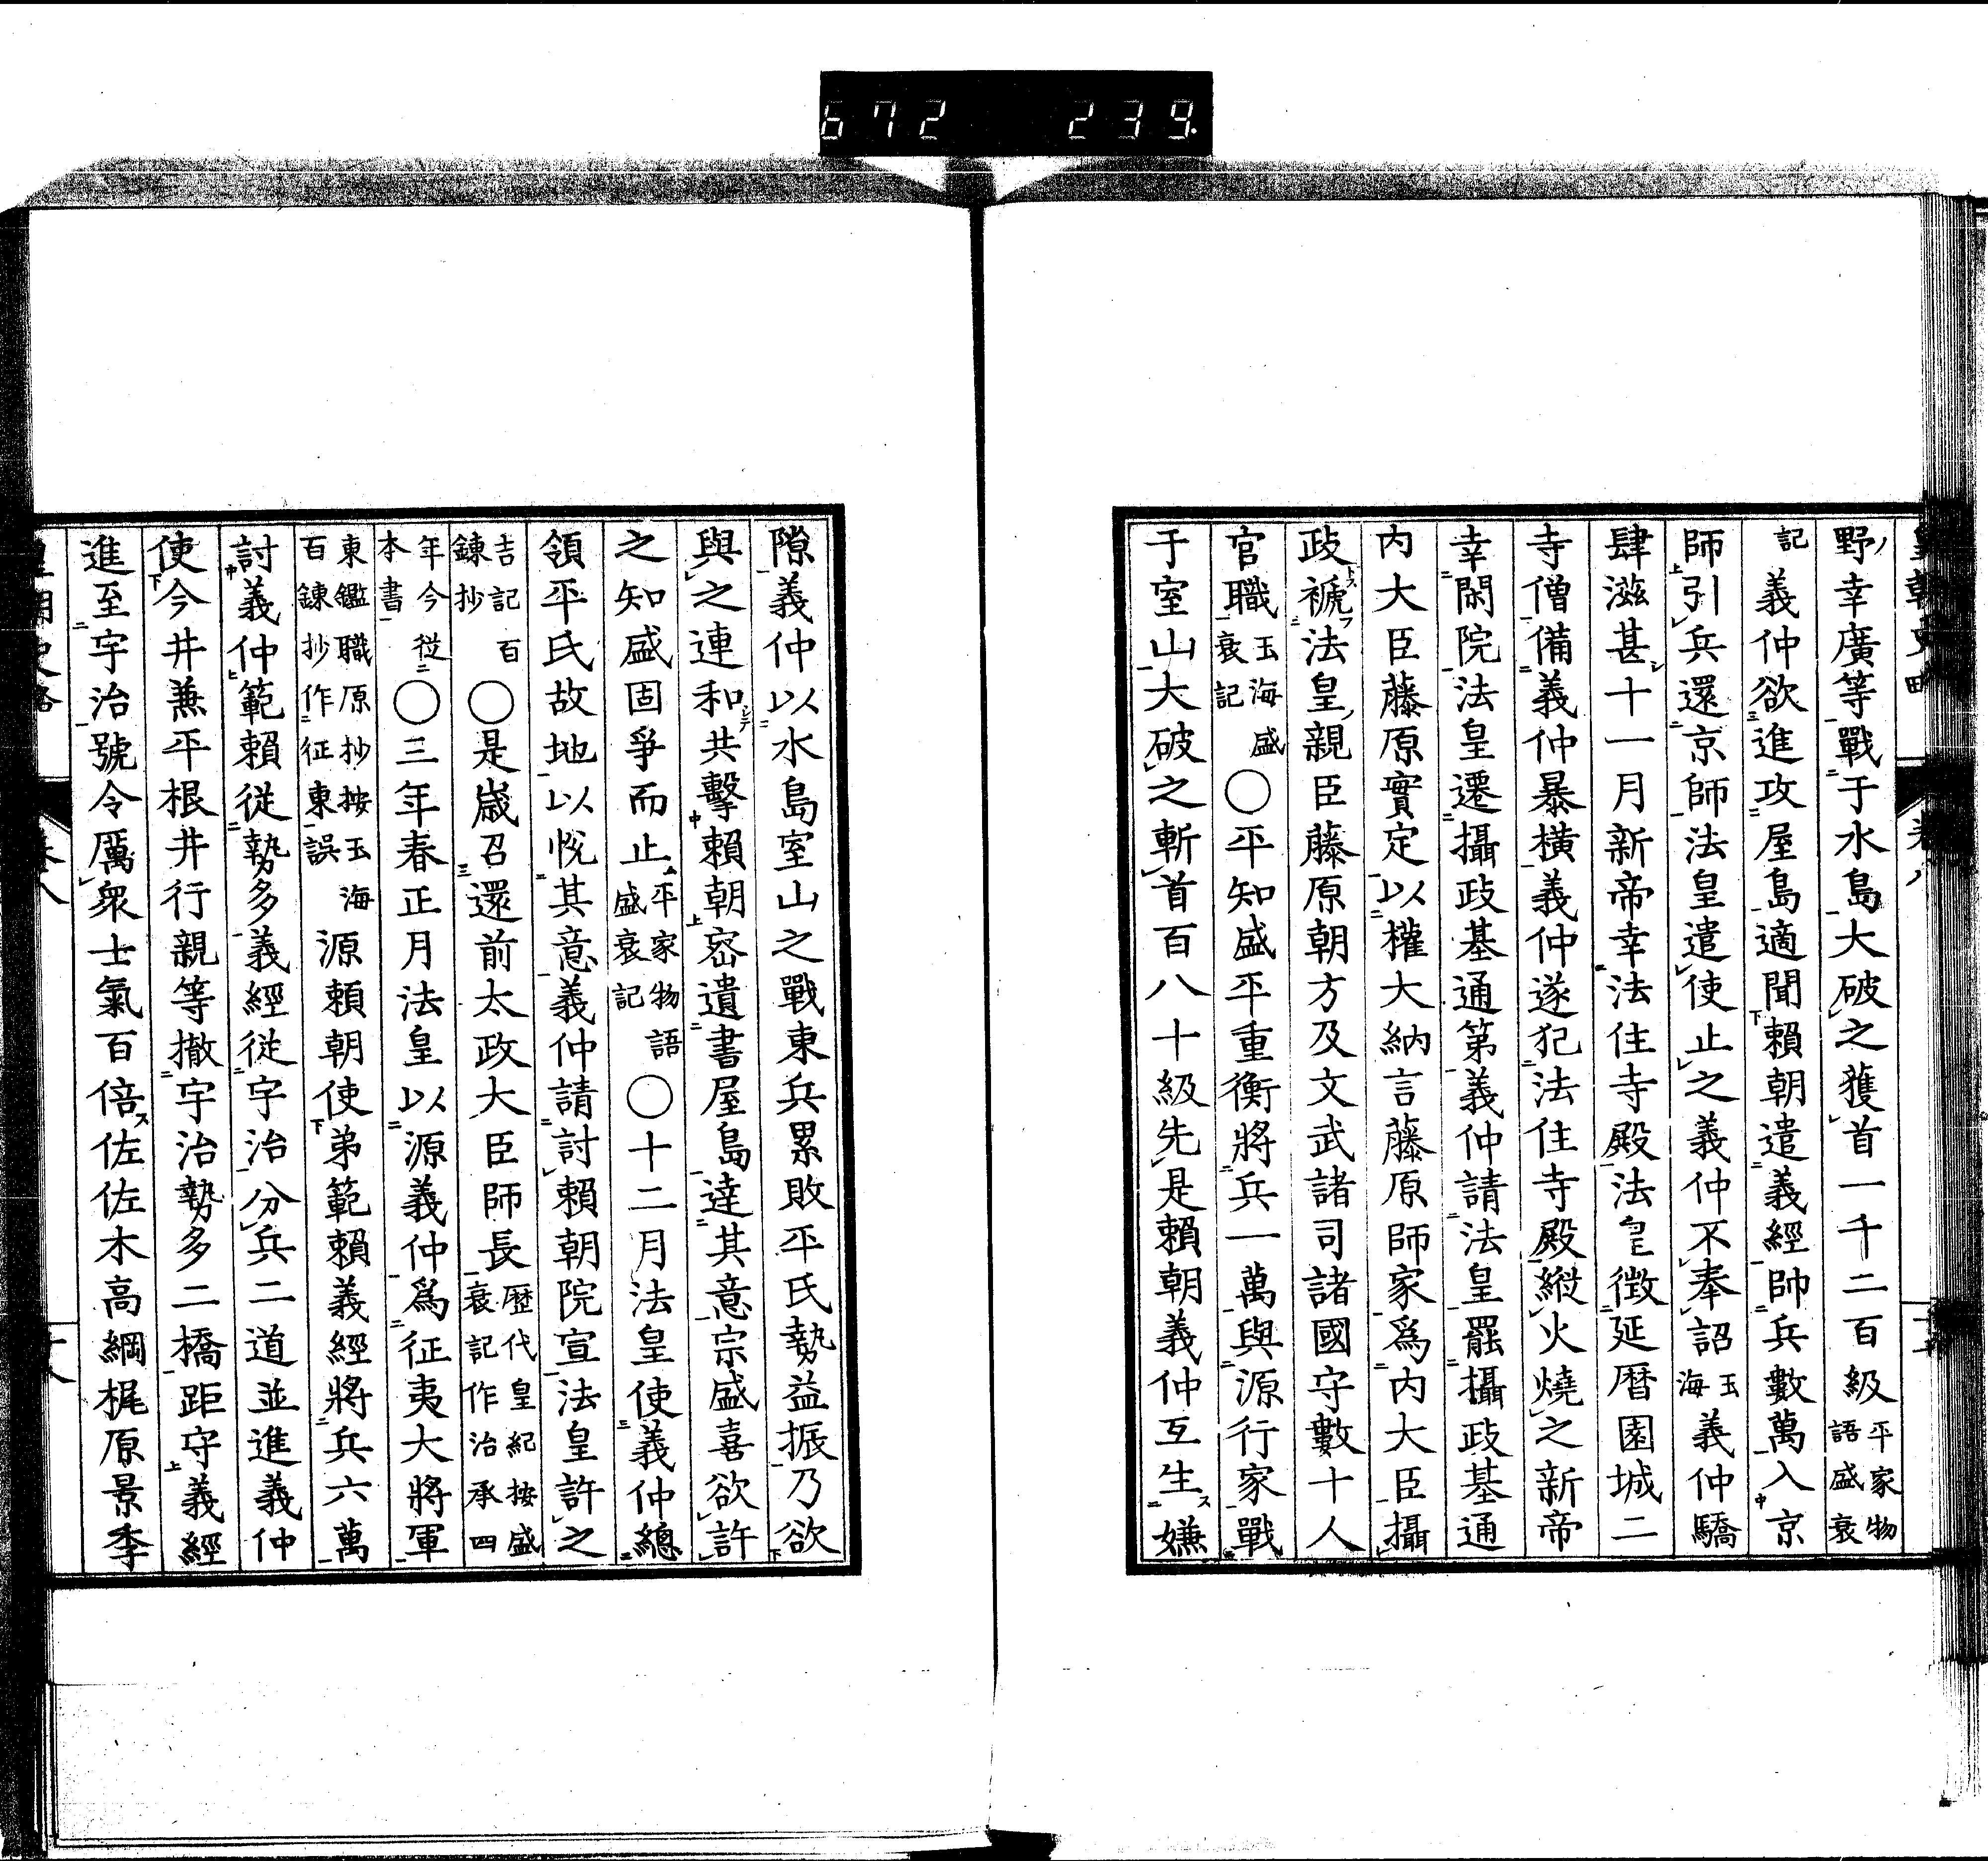 672 239.
皇朝史略 卷八
野幸廣等戰于水島大破之獲首一千二百級平家物語盛衰
記義仲欲進攻屋島適聞賴朝遣義經帥兵數萬入京
師引兵還京師法皇遣使止之義仲不奉詔玉海義仲驕
肆滋甚十一月新帝幸法住寺殿法皇徵延曆園城二
寺僧備義仲暴橫義仲遂犯法住寺殿縱火燒之新帝
幸閑院法皇遷攝政基通第義仲請法皇罷攝政基通
内大臣藤原實定以權大納言藤原師家爲内大臣攝
政褫法皇親臣藤原朝方及文武諸司諸國守數十人
官職玉海盛衰記〇平知盛平重衡將兵一萬與源行家戰
于室山大破之斬首百八十級先是賴朝義仲互生嫌
隙義仲以水島室山之戰東兵累敗平氏勢益振乃欲
與之連和共擊賴朝密遺書屋島達其意宗盛喜欲許
之知盛固爭而止平家物語盛衰記〇十二月法皇使義仲總
領平氏故地以悅其意義仲請討賴朝院宣法皇許之
吉記百鍊抄〇是歲召還前太政大臣師長歷代皇紀按盛衰記作治承四
年今從本書〇三年春正月法皇以源義仲爲征夷大將軍
東鑑職原抄按玉海百鍊抄作征東誤源賴朝使弟範賴義經將兵六萬
討義仲範賴從勢多義經從宇治分兵二道並進義仲
使今井兼平根井行親等撤宇治勢多二橋距守義經
進至宇治號令厲衆士氣百倍佐佐木高綱梶原景季
皇朝史略 卷八